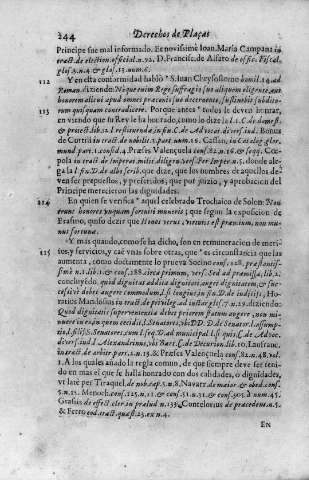 244 Derechos de Plaças
Principe fue mal informado. Et novissimè Ioan. Maria Campana in
tract. de election official. n. 92. D. Francisc. de Alfaro de offic. Fiscal.
glos. 5. n. 4. & glos. 13. num. 6.
112 Y en esta conformidad habló S. Iuan Chrysostomo homil. 29. ad
Roman. diziendo: Neque enim Rege suffragijs suo aliquem eligente, aut
honorem alicui apud omnes præcunte suæ decernente, sustinebit subdito-
113 rum quisquam contradicere. Porque antes todos le deven honrar,
en viendo que su Rey le ha honrado, como lo dize
& protect. lib. 12. l. restituenda, in fin. C. de Advocat. divers. iud. Bonus
de Curtili in tract. de nobilit. 3. part. num. 16. Cassan. in Catalog. glor.
mund. part. 1. consid. 4. Præses Valençuela cons. 82. n. 16. & seq. Cæ-
pola in tract. de imperat. milit. deligend. vers. Per Imper. n. 5. donde ale-
ga la l. fin. D. de albo scrib. que dize, que los nombres de aquellos de-
ven ser propuestos, y preferidos, que por juizio, y aprobacion del
Principe merecieron las dignidades.
114 En quien se verifica aquel celebrado Trochaico de Solon: Non
erunt honores unquam fortuiti muneris; que segun la exposicion de
Erasmo, quiso dezir que Honos verus, virtutis est præmium, non mu-
nus fortunæ.
115 Y mas quando, como se ha dicho, son en remuneracion de meri-
tos, y servicios, y caè unas sobre otras, que es circunstancia que las
aumenta, como doctamente lo prueva Socino cons. 128. præstantis-
simè n. 1. lib. 1. & cons. 288. circa primum, vers. Sed ad præmissa, lib. 2.
concluyèdo. quod dignitas addita dignitati, auget dignitatem, & suc-
cessivè debet augere commodum. l. si longius, in fin. D. de iudicijs, Ho-
ratius Mandosius in tract. de privileg. ad instar glos. 7. n. 19. diziendo:
Quod dignitatis supervenientia debet priorem statum augere, non mi-
nuere in eo, in quem cecidit, l. Senatores, ubi DD. D. de Senator. l. assump-
tio, l. filij. S. Senatores, cum l. seq. D. ad municipal. l. si quis C. de Advoc.
divers. iud. l. Alexandrinus, ubi Bart. C. de Decurion. lib. 10. Lanfranc.
in tract. de arbitr. part. 2. n. 19. & Præses Valençuela cons. 82. n. 48. vol.
1. A los quales añado la regla comun, de que siempre deve ser teni-
do en mas el que se halla honrado con dos calidades, o dignidades,
ut latè per Tiraquel. de nob. cap. 5. n. 8. Navarr. de maior. & obed. cons.
5. n. 11. Menoch. cons. 125. n. 11. & cons. 51. n. 31. & cons. 305. à num. 45.
Grassus de effect. cler. in prælud. n. 139. Contelorius de præcedent. n. 5.
& Ferro eod. tract. quæst. 23. ex n. 4.
EN